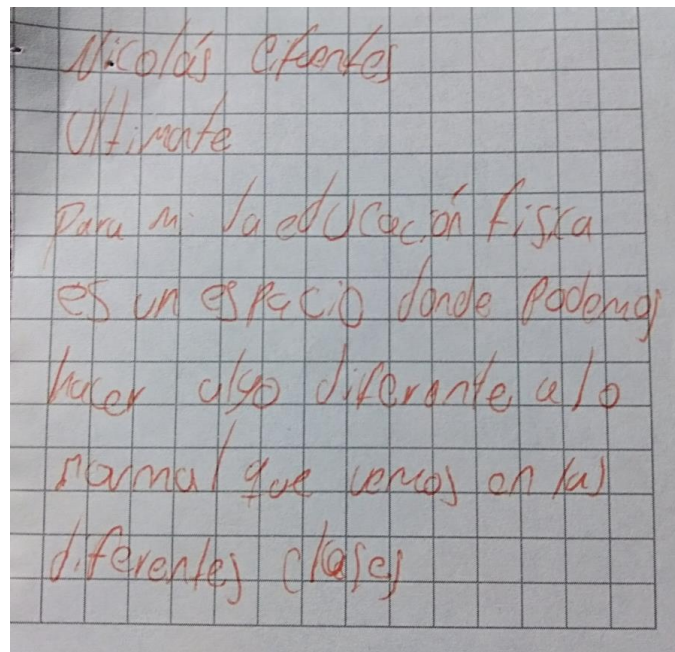 Nicolás Cifuentes
Ultimate
Para mi la educación fisica
es un espacio donde podemos
hacer algo diferente a lo
normal que vemos en las
diferentes clases